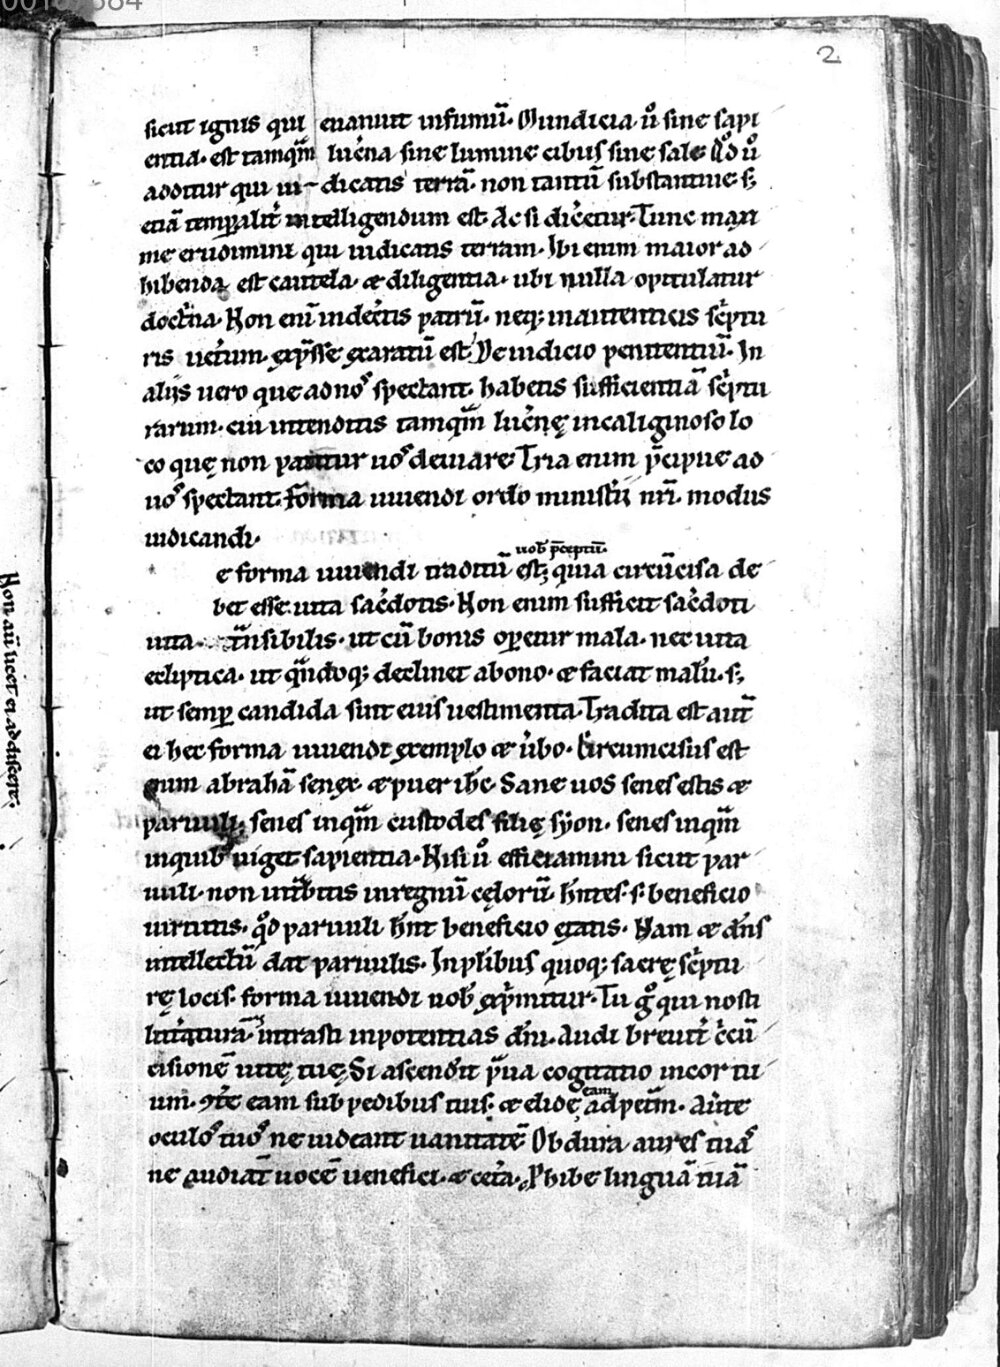 2
sicut ignis qui euanuit infumū. Mundicia ů sine sapi
entia. est tamqm̄ luc̄na sine lumine cibus sine sale Qđ ů
additur qui iu-dicatis terrā. non tantū substantiue s;
etiā temꝑalit̄ intelligendum est. Ac si dic̄etur. Tunc maxi
me erudimini qui iudicatis terram. Ibi enim maior ad
hibenda est cautela. & diligentia. ubi nulla opitulatur
doct̄na. Non eni indec̄tis patrū. neq; in autenticis sc̄ptu
ris uet̄um. exp̄sse exaratū est. De iudicio penitentiū. In
alijs uero que ad nos spectant. habetis sufficientiā sc̄ptu
rarum. cui intenditis tamqm̄ luc̄nę in caliginoso lo
co quę non patitur uos deuiare. Tria enim p̄cipue ad
uos spectant. forma uiuendi ordo minist̄ii nr̄i. modus
iudicandi.
uob̄ p̄ceptū.
e forma uiuendi traditū est; quia circūcisa de
bet esse uita sac̄dotis. Non enim sufficit sac̄doti
uita t̄nsibilis. ut cū bonis oꝑetur mala. nec uita
ecliptica. ut qn̄doq; declinet abono. & faciat malū. s;
ut semꝑ candida sint eius uestimenta. Tradita est aut̄
ei hec forma uiuendi exemplo & ūbo. Circumcisus est
enim abrahā senex. & puer ih̄c. Sane uos senes estis &
paruuli. senes inqm̄ custodes filię syon. senes inqm̄
inquib; uiget sapientia. Nisi ů efficiamini sicut par
uuli. non int̄bitis inregnū cęlorū. hn̄tes. s. beneficio
uirtutis. qđ paruuli hn̄t beneficio etatis. Nam & dn̄s
intellectū dat paruulis. In plib̄us quoq; sacrę sc̄ptu
rę locis. forma uiuendi uob̄ exp̄mitur. Tu g̊ qui nosti
litt̄aturā. intrasti inpotentias dn̄i. Audi breuit̄ c̄cū
cisionē uitę tuę. Si ascend̄it p̄ua cogitatio in cor tu
eam
um. ꝯt̄e eam sub pedibus tuis. & elide ad pet̄m. Aūte
oculos tuos ne uideant uanitatē Obdura aures tuas
ne audiat̄ uocē uenefici. & cet̄a. Ꝓhibe linguā tuā
Non aū licet ei addiscere.